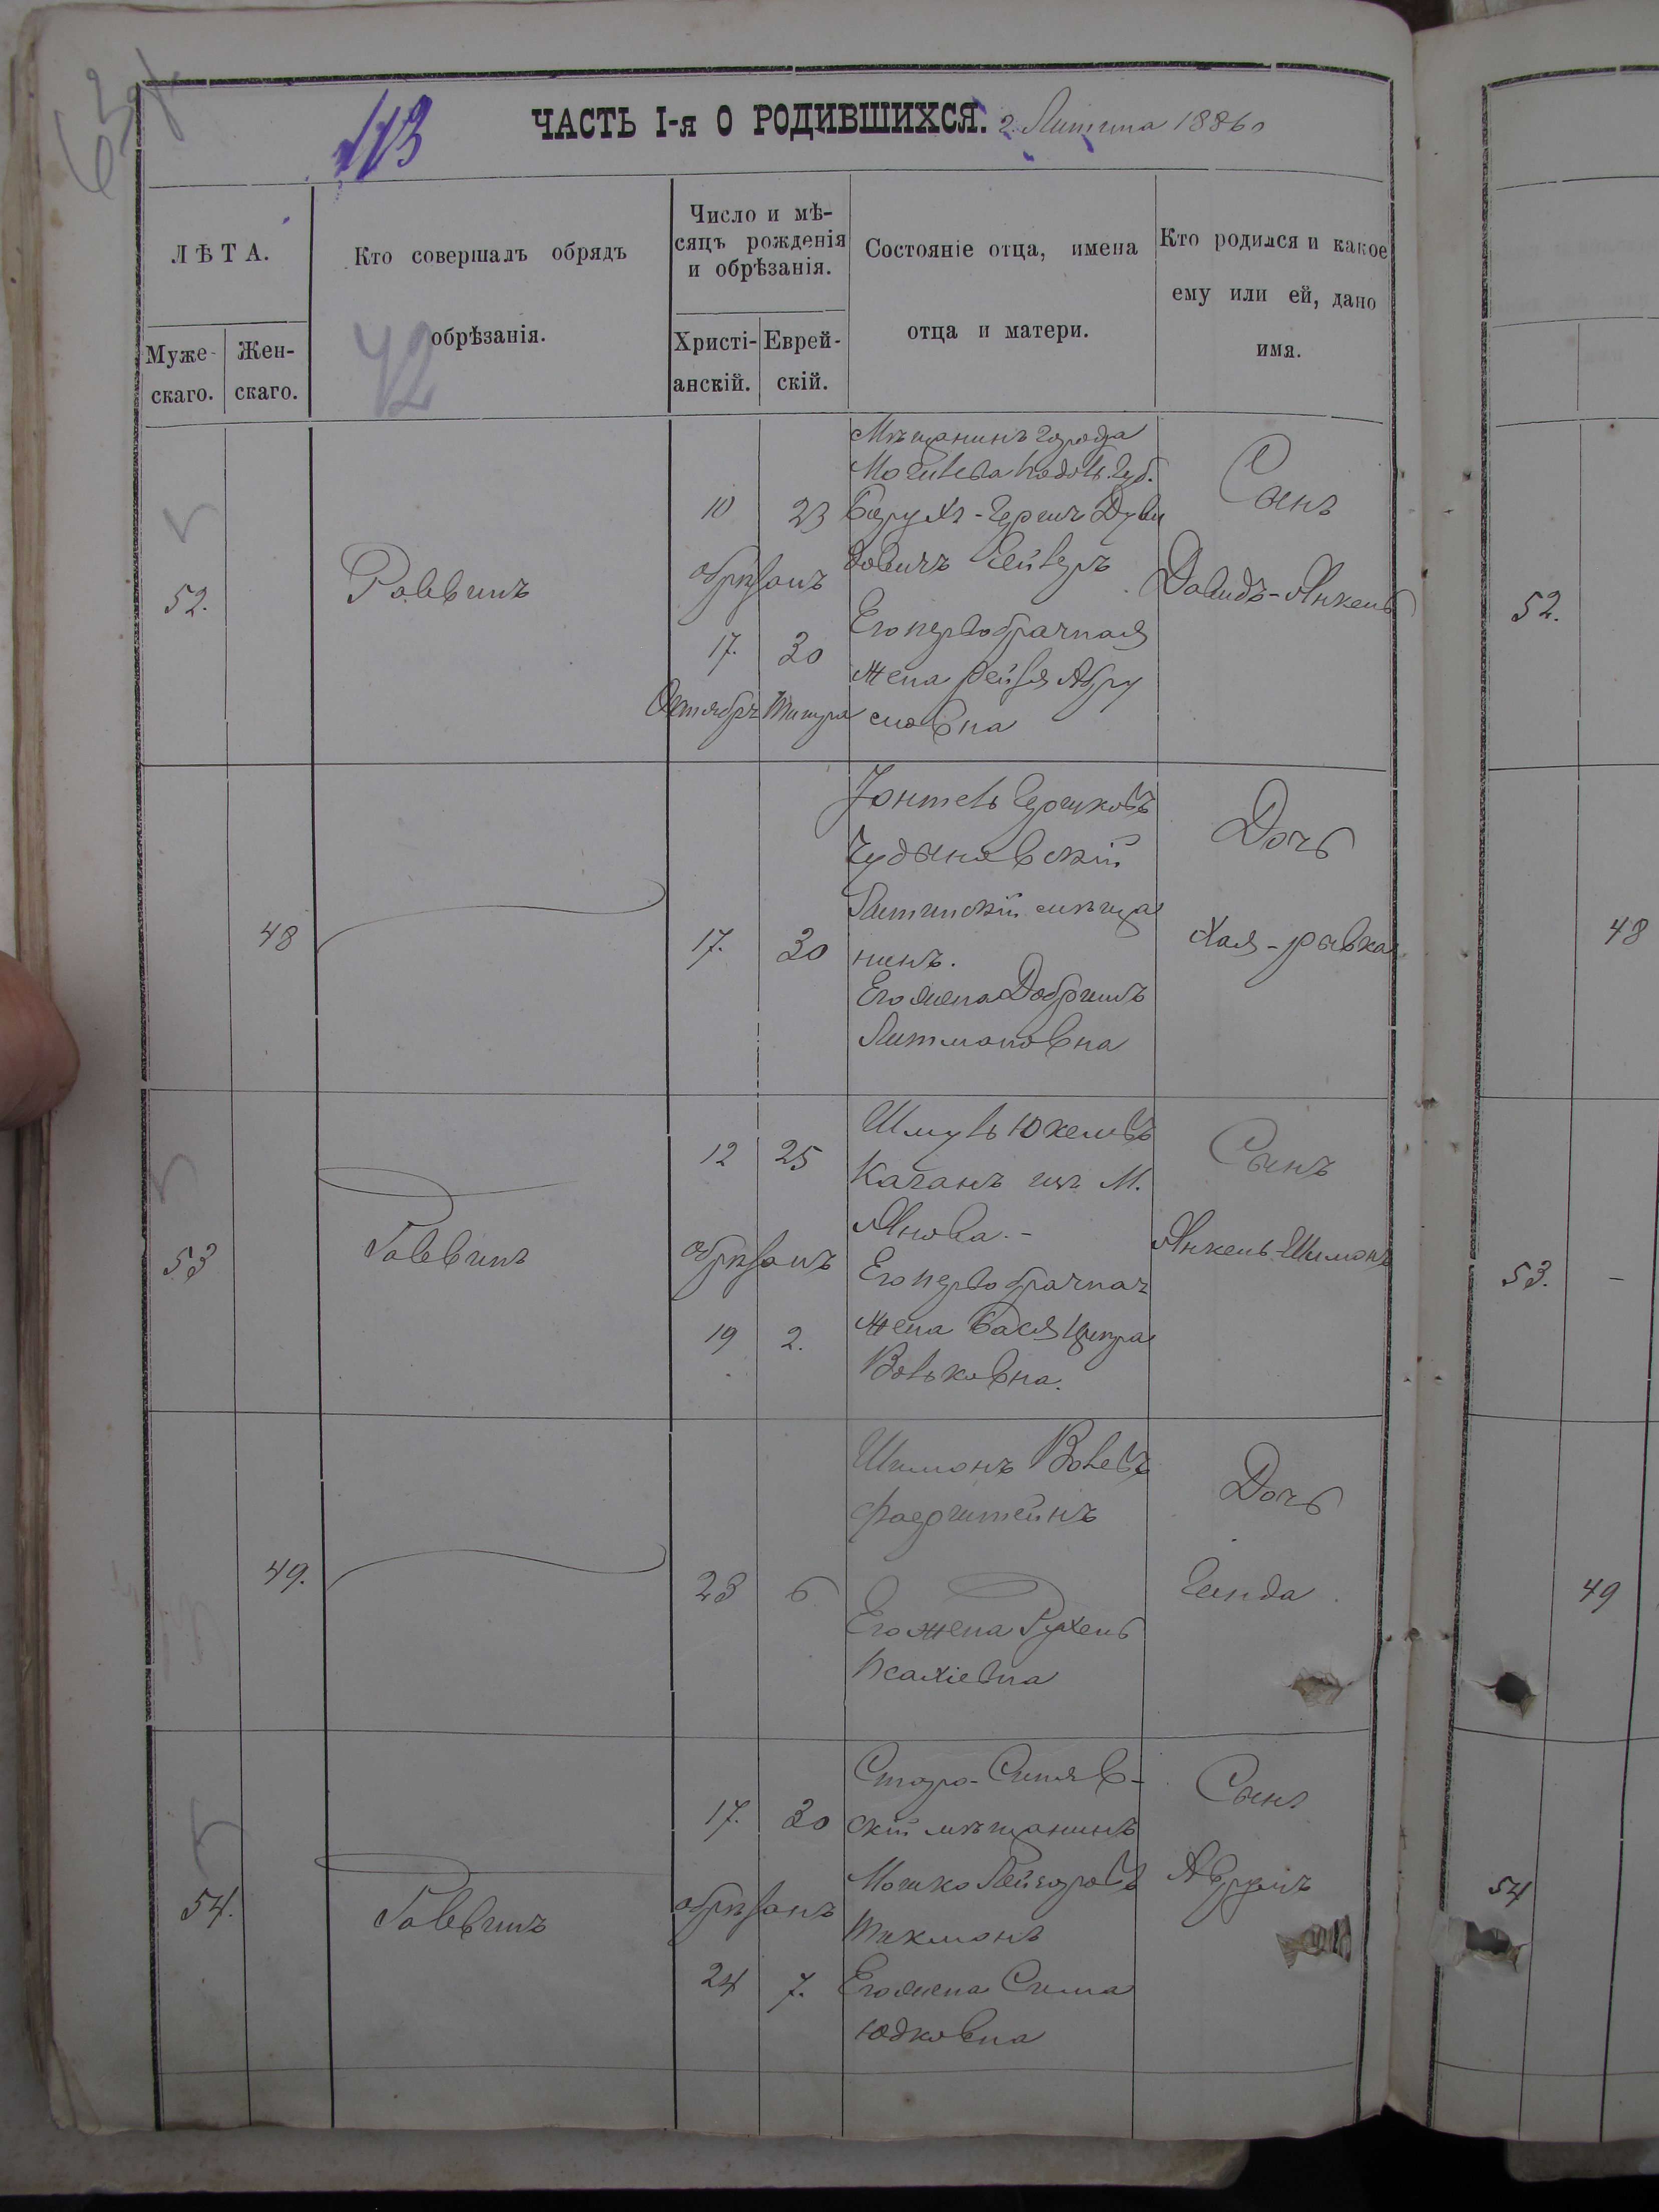 63
113
ЧАСТЬ I-я О РОДИВШИХСЯ. г. Литина 1886 г
ЛѢТА.
Муже-
скаго.
Жен-
скаго.
Кто совершалъ обрядъ
обрѣзанія.
42
Число и мѣ-
сяцъ рожденія
и обрѣзанія.
Христі-
анскій.
Еврей-
скій.
Состояніе отца, имена
отца и матери.
Кто родился и какое
ему или ей, дано
имя.
52.
Раввинъ
10 23
обрѣзанъ
17. 30
Октябрь Тишра
Мѣщанинъ города
Могилева Подоль. Губ.
Барухъ-Гершъ Дуви
довичъ
Его первобрачная
жена Рейзя Абру
мовна
Сынъ
Давидъ-Янкель
52.
48
17. 30
Іонтель Гершковъ
Чудыновскій
Литинскій мѣща
нинъ.
Его жена Добришъ
Литмановна
Дочь
Хая-ривка
48
53
Раввинъ
12 25
обрѣзанъ
19 2.
Шмуль Юкелевъ
Каганъ изъ М.
Янова.-
Его первобрачная
жена Бася Ципра
Вольковна.
Сынъ
Янкель-Шимонъ
53. –
49.
23 6
Шимонъ Волевъ
Фаерштейнъ
Его жена Рухель
Псахіевна
Дочь
Гинда
49
54.
Раввинъ
17. 30
обрѣзанъ
24 7.
Старо-Синяв-
скій мѣщанинъ
Мошко Лейзоровъ
Тикманъ
Его жена Сима
Юдковна
Сынъ
Аврумъ
54